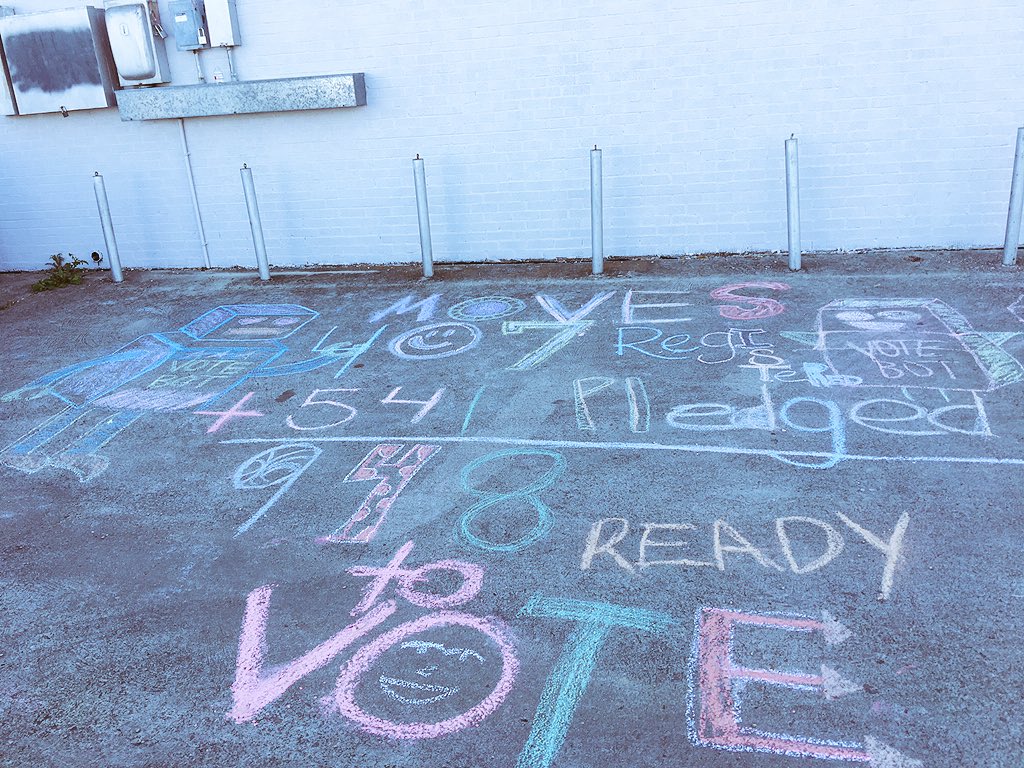 MOVES
VOTE
BOT
407 RegISTeReD
VOTE
BOT
+ 541 Pledged
948 READY
to
VOTE